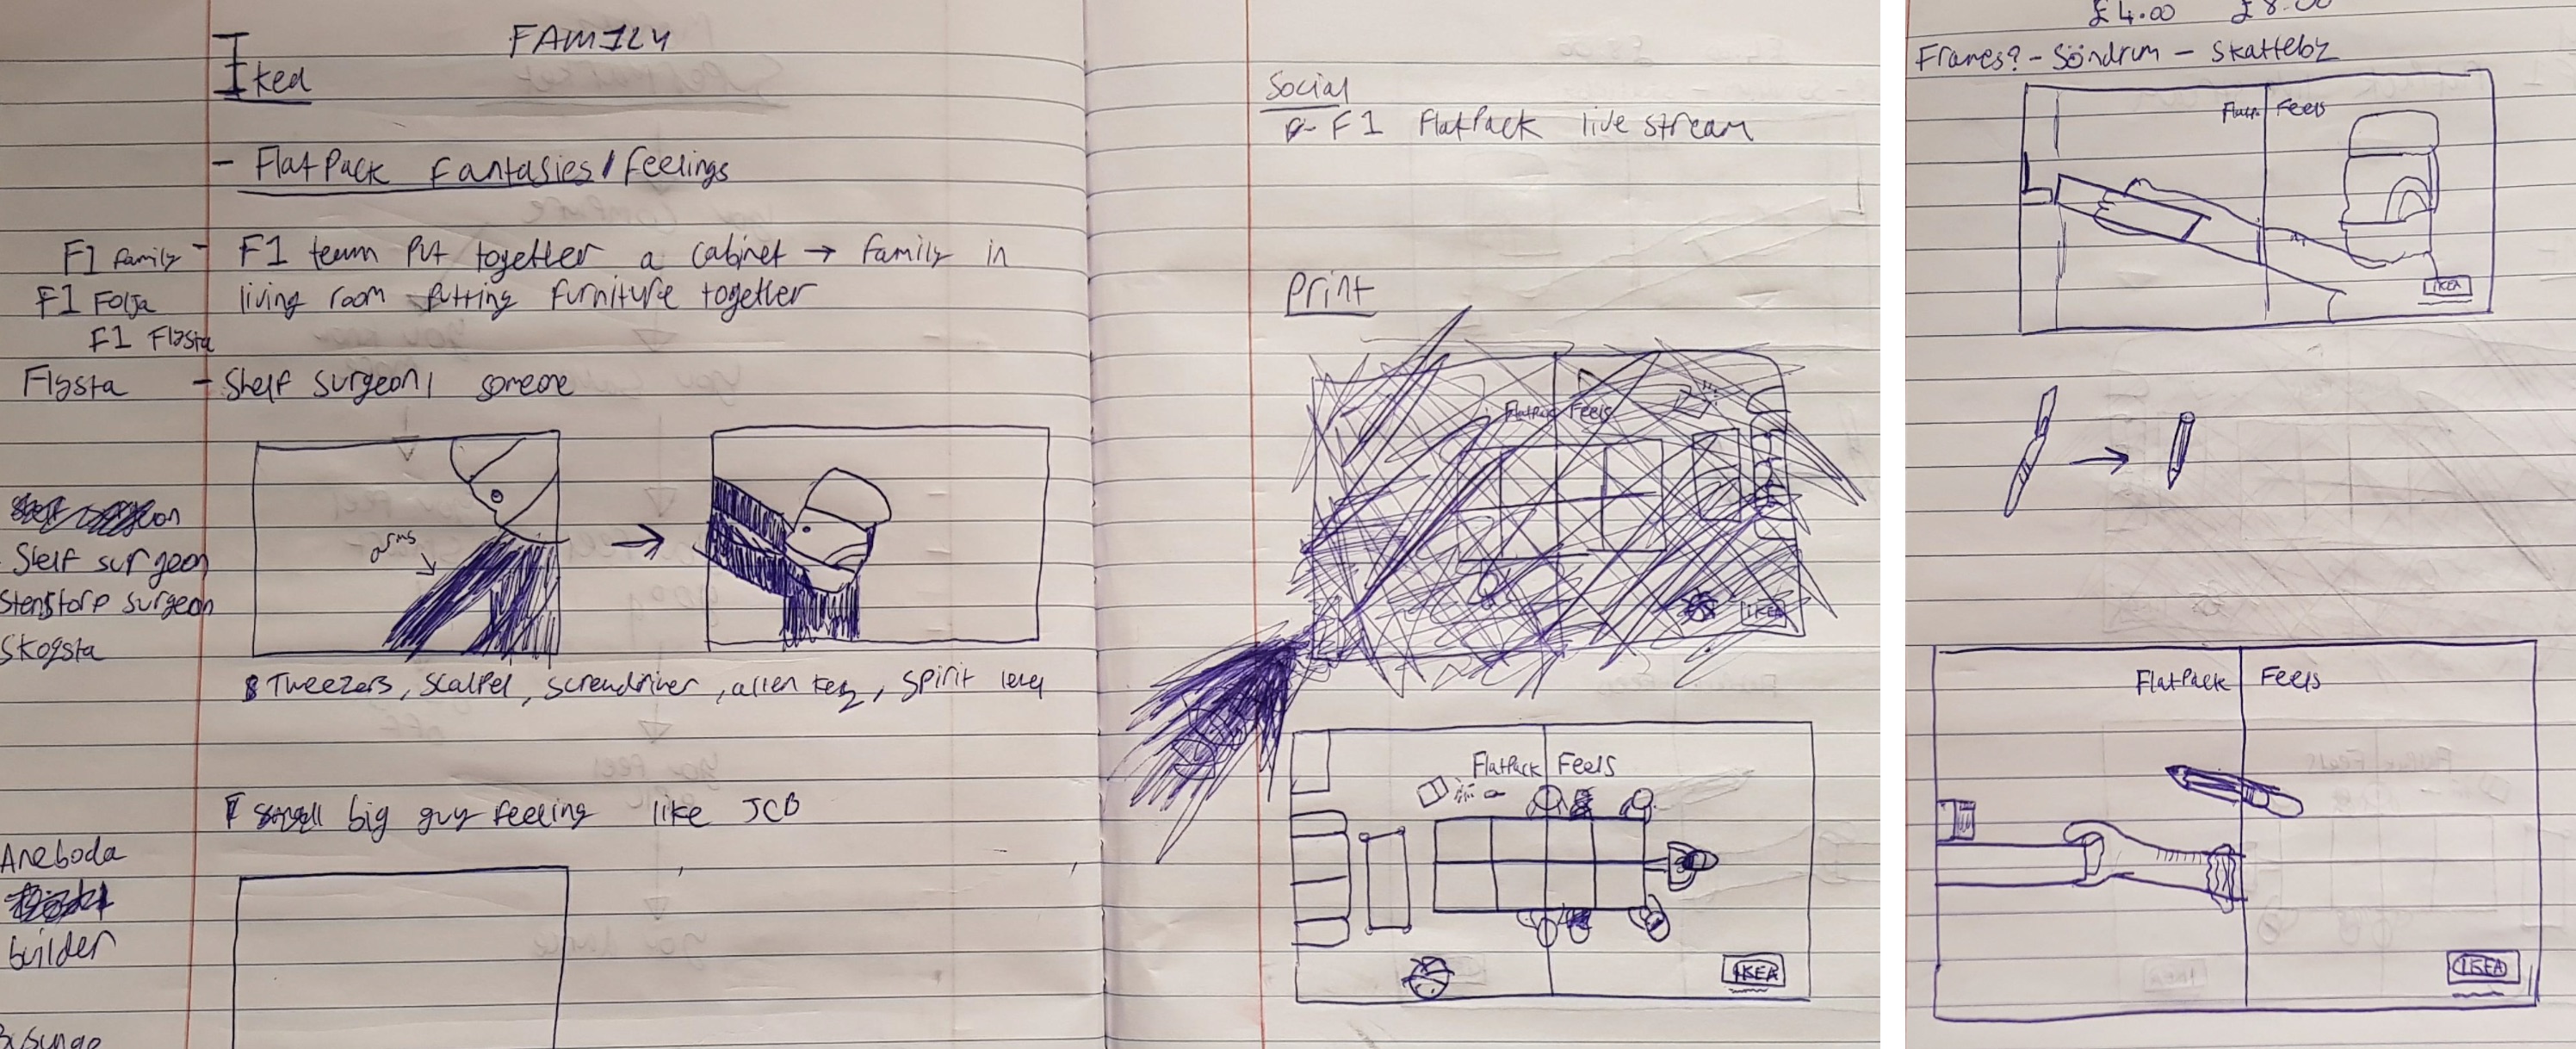 FAMILY
Iked
- FlatPack Fantasies/Feelings
F1 family - F1 team Put together a cabinet → family in
F1 Folja living room Putting furniture together
F1 Flysta
Flysta - Shelf surgeon/ someone
arms
Shelf surgeon
Stenstorp surgeon
Skogsta
Tweezers, scalpel, screwdriver, allen key, spirit level
big guy feeling like JCB
Aneboda
builder
Social
- F1 FlatPack live stream
Print
FlatPack Feels
IKEA
FlatPack Feels
IKEA
£4.00 £8.00
Frames? - Söndrum - Skatteby
Feels
IKEA
FlatPack Feels
IKEA